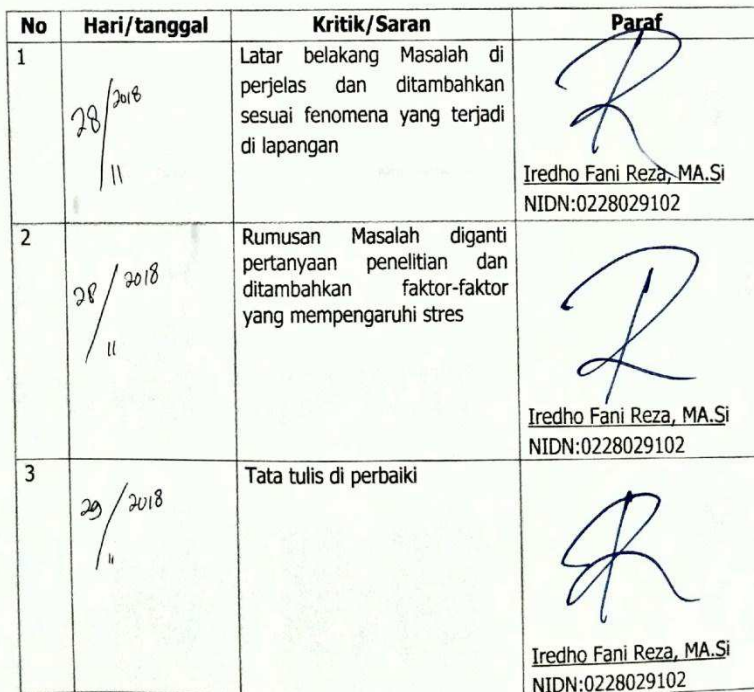 No Hari/tanggal Kritik/Saran Paraf
1
28/2018
11
Latar belakang Masalah di
perjelas dan ditambahkan
sesuai fenomena yang terjadi
di lapangan
Iredho Fani Reza, MA.Si
NIDN:0228029102
2
28/2018
11
Rumusan Masalah diganti
pertanyaan penelitian dan
ditambahkan faktor-faktor
yang mempengaruhi stres
Iredho Fani Reza, MA.Si
NIDN:0228029102
3
29/2018
11
Tata tulis di perbaiki
Iredho Fani Reza, MA.Si
NIDN:0228029102